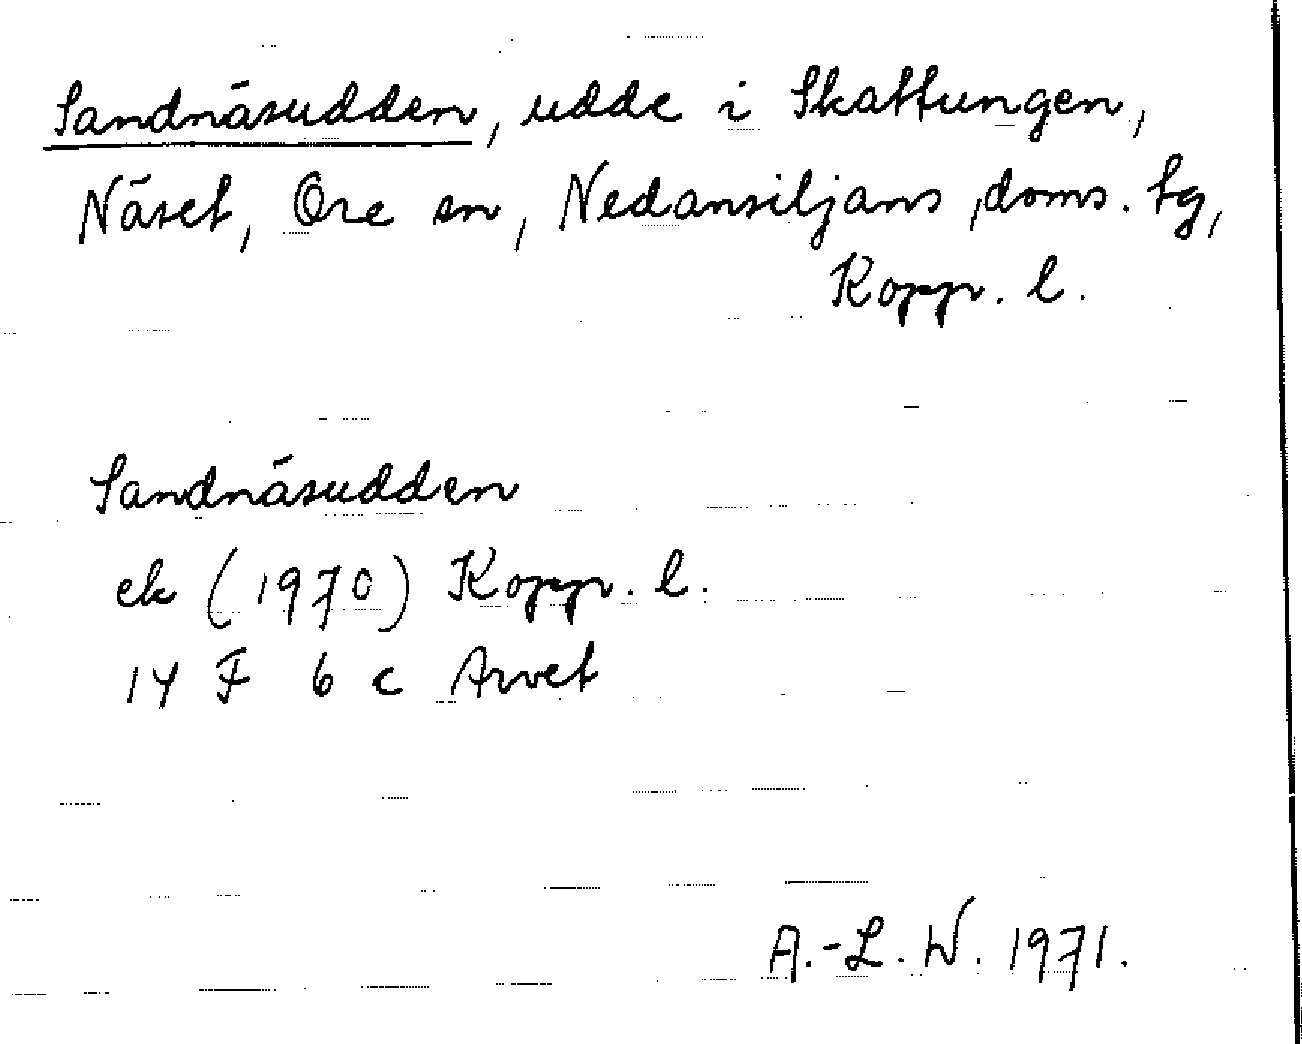 Sandnäsudden, udde i Skattungen,
Näset, Ore sn, Nedansiljans doms. tg,
Kopp. l.
Sandnäsudden
ek (1970) Kopp. l.
14 F 6 c Arvet
A.-L. W. 1971.